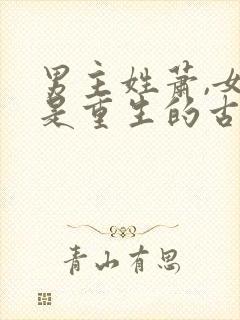 男主姓萧,女
是重生的古
青山有思